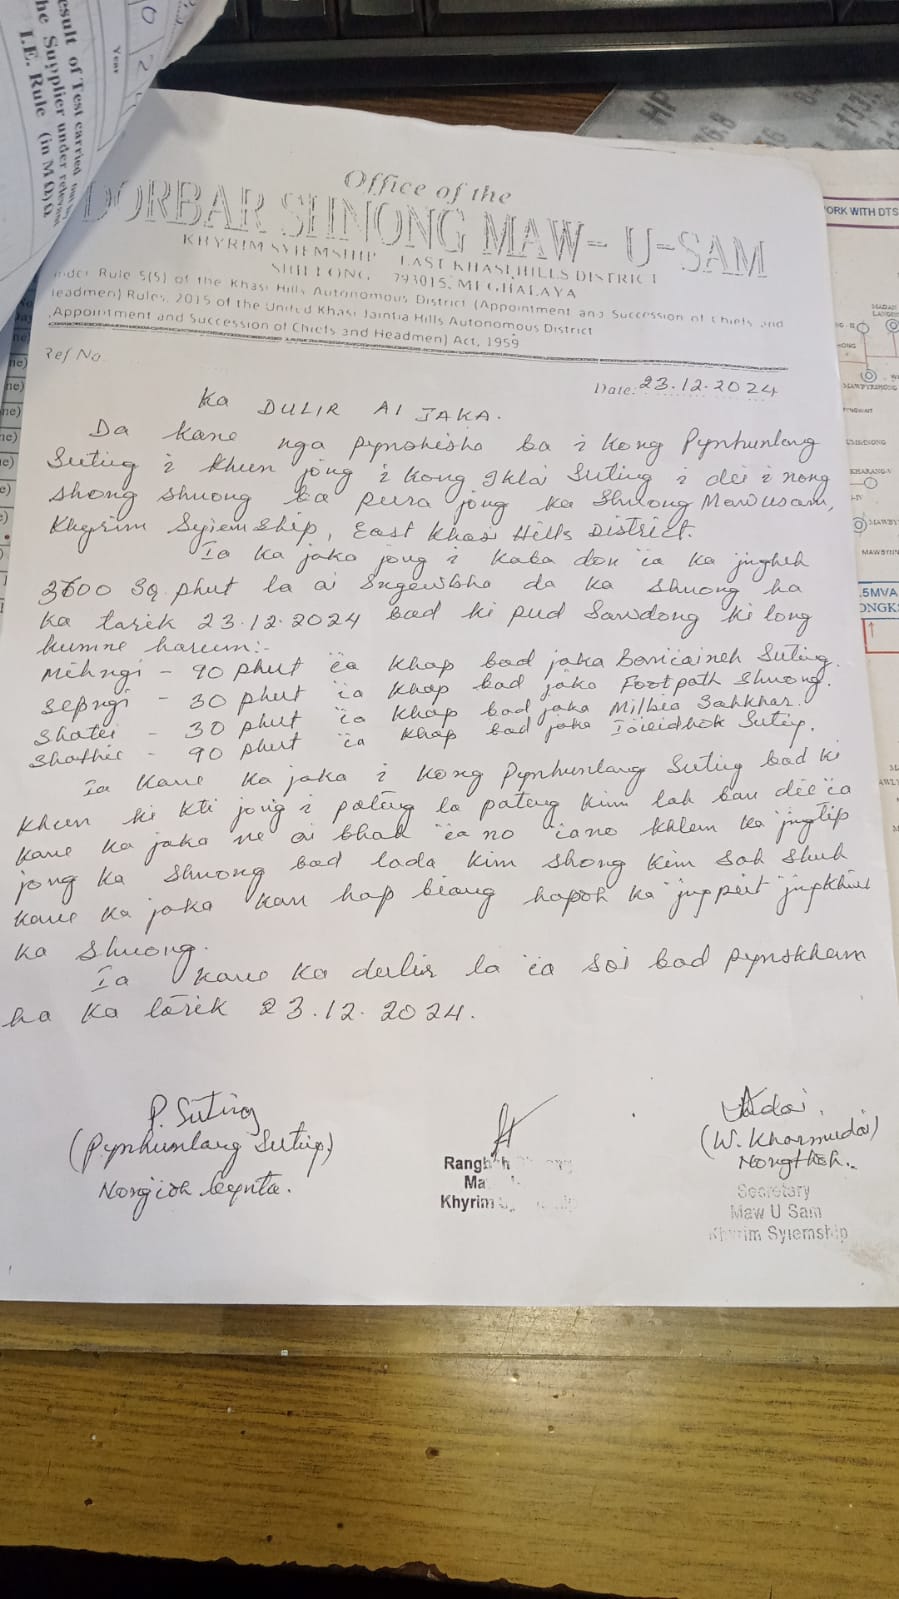 esult of Test carried out by
he Supplier under relevant
I.E. Rule (in M Ω) Ω
Year
HP
ORK WITH DTS
5MVA
ONGKS
Office of the
DORBAR SHNONG MAW- U-SAM
KHYRIM SYIEMSHIP EAST KHASI HILLS DISTRICT
SHILLONG, 793015, MEGHALAYA
nder Rule 5(5) of the Khasi Hills Autonomous District (Appointment and Succession of Chiefs and
Headmen) Rules, 2015 of the United Khasi Jaintia Hills Autonomous District
Appointment and Succession of Chiefs and Headmen) Act, 1959
Ref No
Date: 23.12.2024
Ka DULIR AI JAKA.
Da kane nga pynshisha ba i kong Pynhunlang
Suting i khun jong i kong Iklai Suting i dei i nong
shong shnong ba pura jong ka Shnong Mawusam,
Khyrim Syiemship, East Khasi Hills District.
Ia ka jaka jong i kaba don ïa ka jngheh
3600 Sq phut la ai sngewbha da ka shnong ha
ka tarik 23.12.2024 bad ki pud sawdong ki long
kumne harum:-
Mihngi - 90 phut ïa khap bad jaka Suting.
Sepngi - 30 phut ïa khap bad jaka Footpath Shnong.
Shatei - 30 phut ïa khap bad jaka Milbia Sahkhar.
Shathie - 90 phut ïa khap bad jaka Suting.
Ia kane ka jaka i kong Pynhunlang Suting bad ki
khun ki kti jong i pateng la pateng kim lah ban die ïa
kane ka jaka ne ai bhah ïa no ïano khlem ka jingtip
jong ka shnong bad lada kim shong kim sah shuh
kane ka jaka kan hap biang hapoh ka
ka shnong.
Ia kane ka dulir la ïa soi bad pynskhem
ha ka tarik 23.12.2024.
P. Suting
(Pynhunlang Suting)
Nongïoh bynta.
Rangb h
Ma
Khyrim
(W. Kharmudai)
Nongthoh.
Secretary
Maw U Sam
Khyrim Syiemship